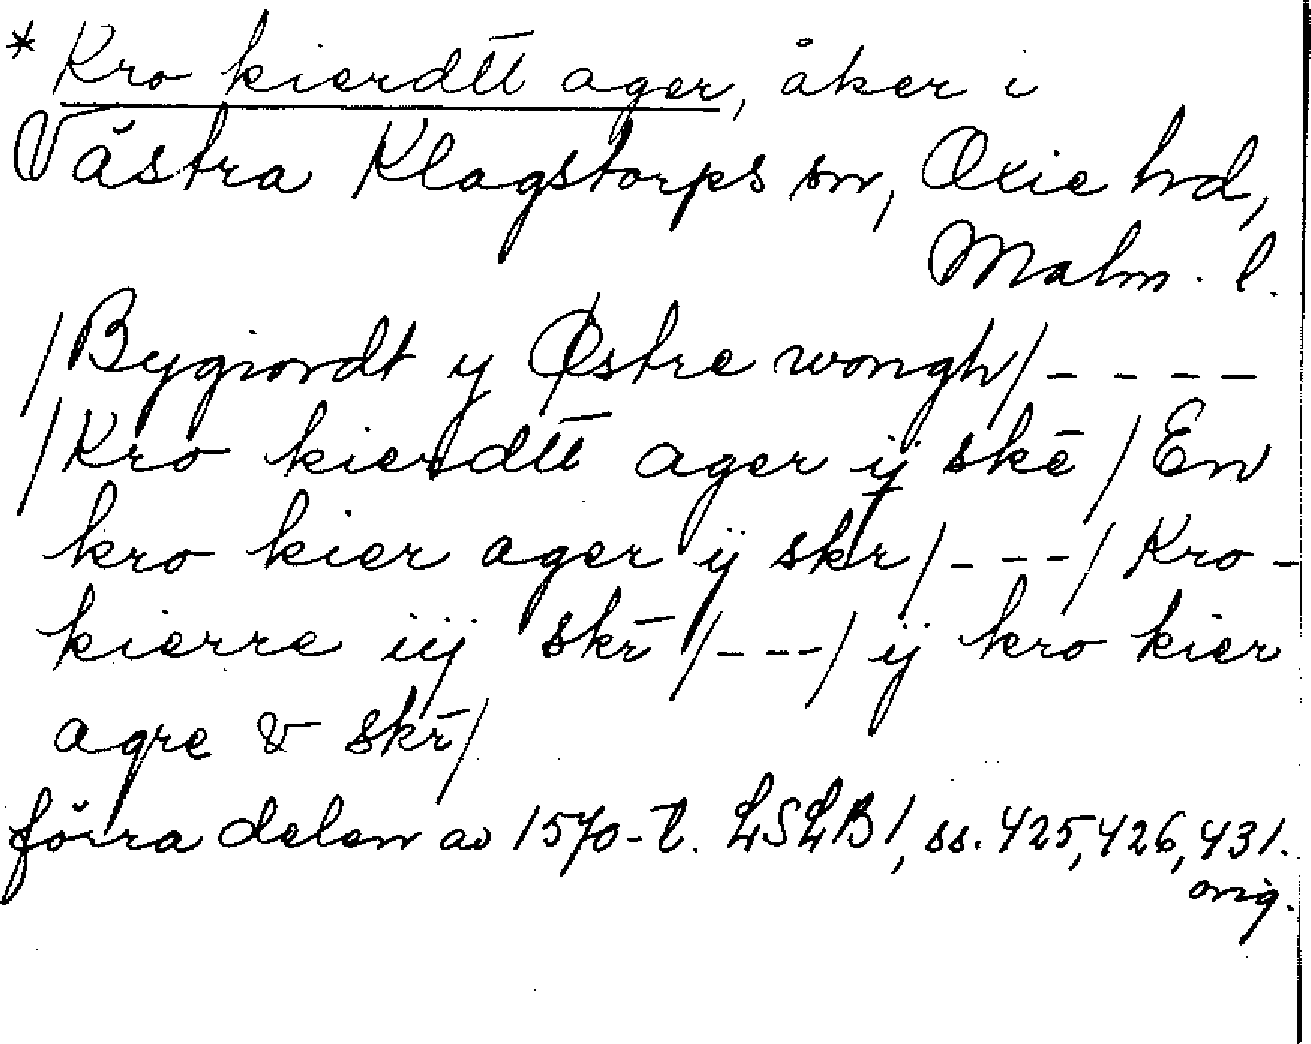 * Kro kierdtt ager, åker i
Västra Klagstorps sn, Oxie hd,
Malm. l.
/Bygiordt y Østre wongh/ - - - -
/Kro kierdtt ager ij skē / En
kro kier ager ij skr/ - - - / Kro-
kierre iij skr̄ / - - - / ij kro kier
agre v skr̄/
förra delen av 1570-t. LSLB 1, ss. 425, 426, 431.
orig.